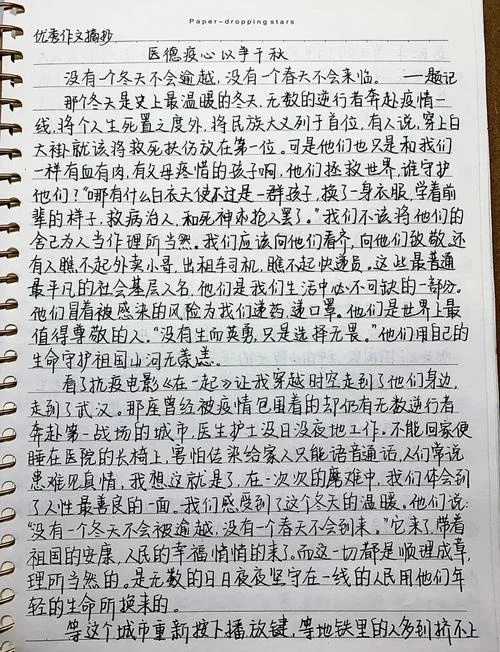 Paper-dropping stars
优秀作文摘抄
医德疫心以争千秋
没有一个冬天不会逾越,没有一个春天不会来临。——题记
那个冬天是史上最温暖的冬天,无数的逆行者奔赴疫情一
线,将个人生死置之度外,将民族大义列于首位,有人说,穿上白
大褂就该将救死扶伤放在第一位。可是他们也只是和我们
一样有血有肉,有父母疼惜的孩子啊,他们拯救世界,谁守护
他们?“哪有什么白衣天使不过是一群孩子,换了一身衣服,学着前
辈的样子,救病治人,和死神抢人罢了。”我们不该将他们的
舍己为人当作理所当然。我们应该向他们看齐,向他们致敬,还
有人瞧不起外卖小哥,出租车司机,瞧不起快递员。这些最普通
最平凡的社会基层人名,他们是我们生活中必不可缺的一部分。
他们冒着被感染的风险为我们递药,递口罩。他们是世界上最
值得尊敬的人。“没有生而英勇,只是选择无畏。”他们用自己的
生命守护祖国山河无恙。
看了抗疫电影《在一起》让我穿越时空走到了他们身边,
走到了武汉。那座曾经被疫情包围着的却仍有无数逆行者
奔赴第一战场的城市,医生护士没日没夜地工作。不能回家便
睡在医院的长椅上,害怕传染给家人只能语音通话,人们常说
患难见真情,我想这就是了,在一次次的磨难中,我们体会到
了人性最善良的一面。我们感受到了这个冬天的温暖。他们说:
“没有一个冬天不会被逾越,没有一个春天不会到来。”它来了,带着
祖国的安康,人民的幸福悄悄的来了。而这一切都是顺理成章,
理所当然的。是无数的日日夜夜坚守在一线的人民用他们年
轻的生命所换来的。
等这个城市重新按下播放键,等地铁里的人多到挤不上